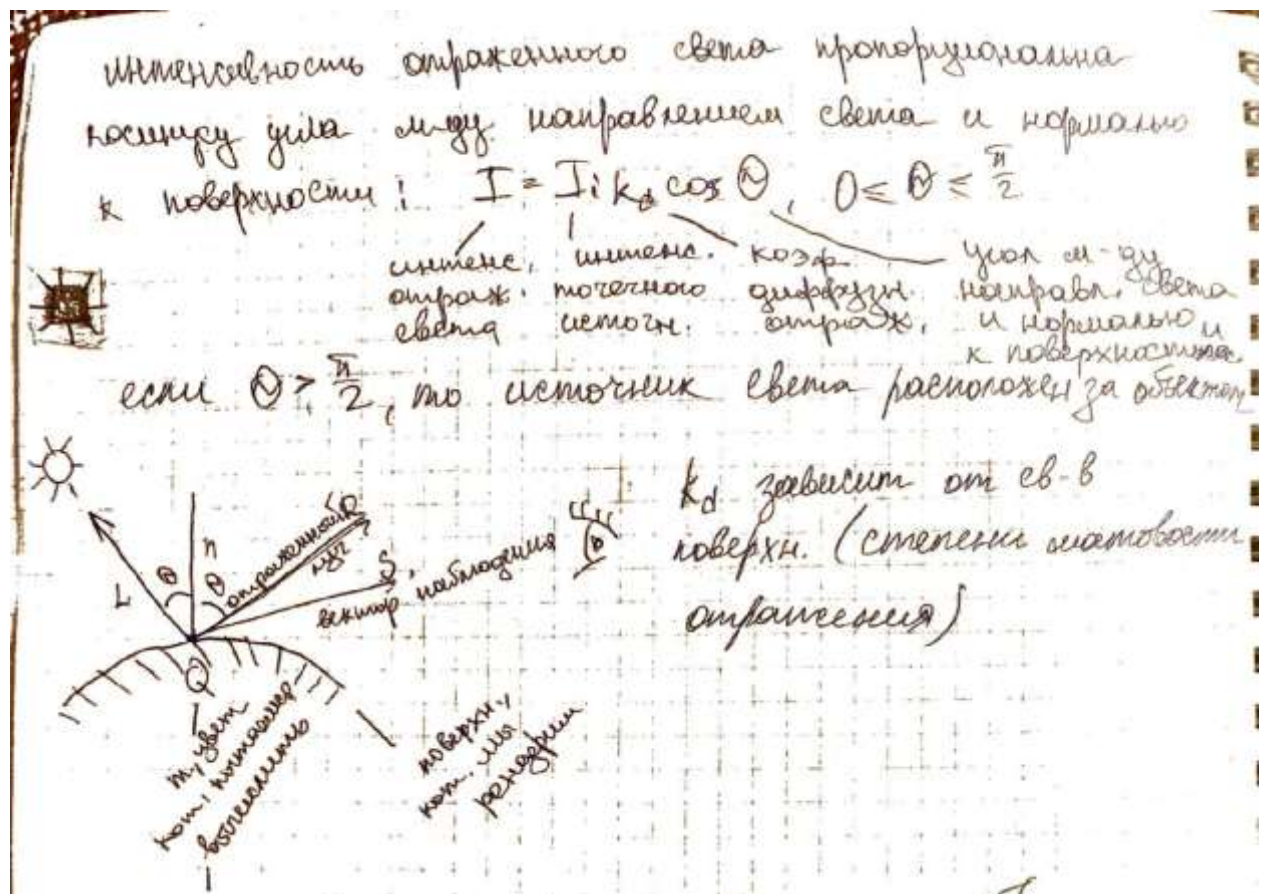 интенсивность отраженного света пропорциональна
косинусу угла м-ду направлением света и нормалью
к поверхности: I = Ii kd cos Θ, 0 ≤ Θ ≤ π/2
интенс. отраж. света
интенс. точечного источн.
коэф диффузн. отраж.
угол м-ду направл. света и нормалью к поверхности
если Θ > π/2, то источник света расположен за объектом
kd зависит от св-в
поверхн. (степени матовости
отражения)
L
Θ
n
Θ
отраженный луч
R
S
вектор наблюдения
Q
т, цвет
кот.
вычислить
поверхн.,
кот. мы
рендерим